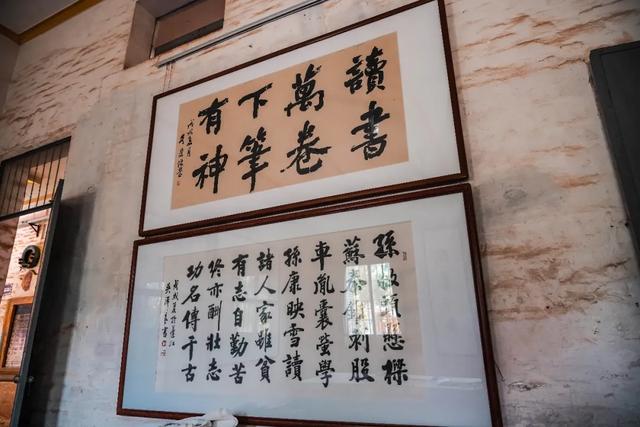 讀書
萬卷
下筆
有神
戊戌五月
孫敬頭懸樑
蘇秦錐刺股
車胤囊螢學
孫康映雪讀
諸人家雖貧
有志自勤苦
終亦酬壯志
功名傳千古